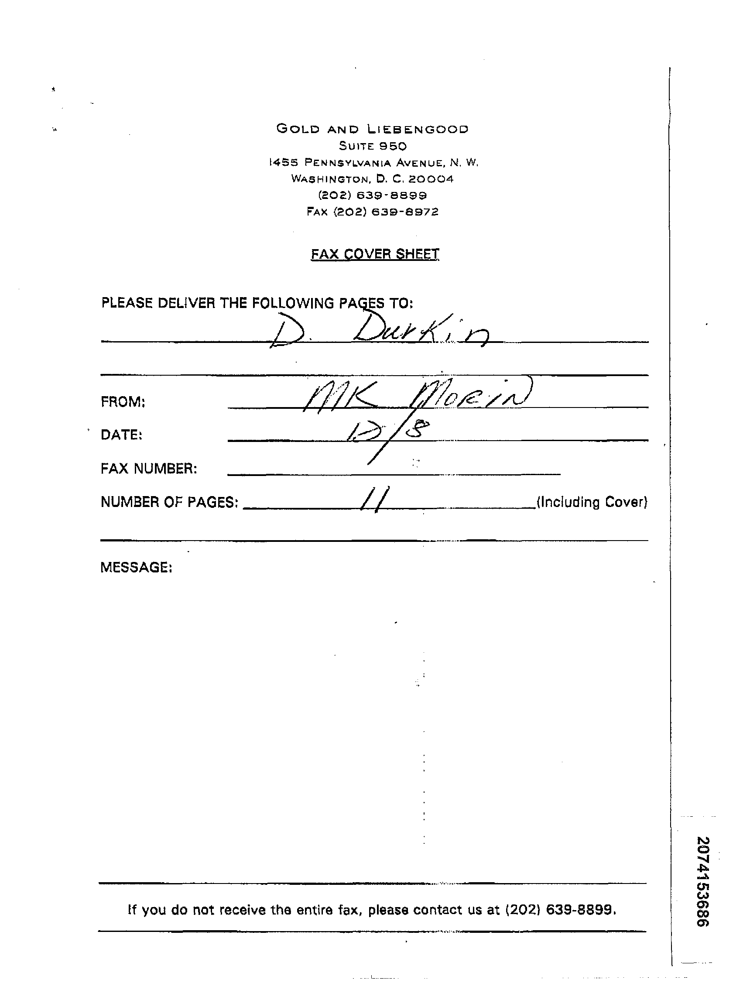 GOLD AND LIEBENGOOD
SUITE 950
1455 PENNSYLVANIA AVENUE, N. W.
WASHINGTON, D. C. 20004
(202) 639-8899
FAX (202) 639-8972
FAX COVER SHEET
PLEASE DELIVER THE FOLLOWING PAGES TO:
D. Durkin
FROM: MK Morin
DATE: 12/8
FAX NUMBER:
NUMBER OF PAGES: 11 (Including Cover)
MESSAGE:
If you do not receive the entire fax, please contact us at (202) 639-8899.
2074153686